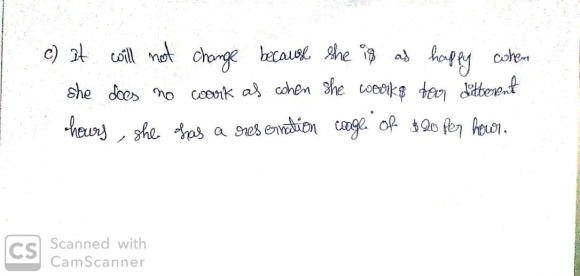 c) It will not change because she is as happy when
she does no work as when she works for different
hours, she has a reservation wage of $20 per hour.
CS Scanned with
CamScanner